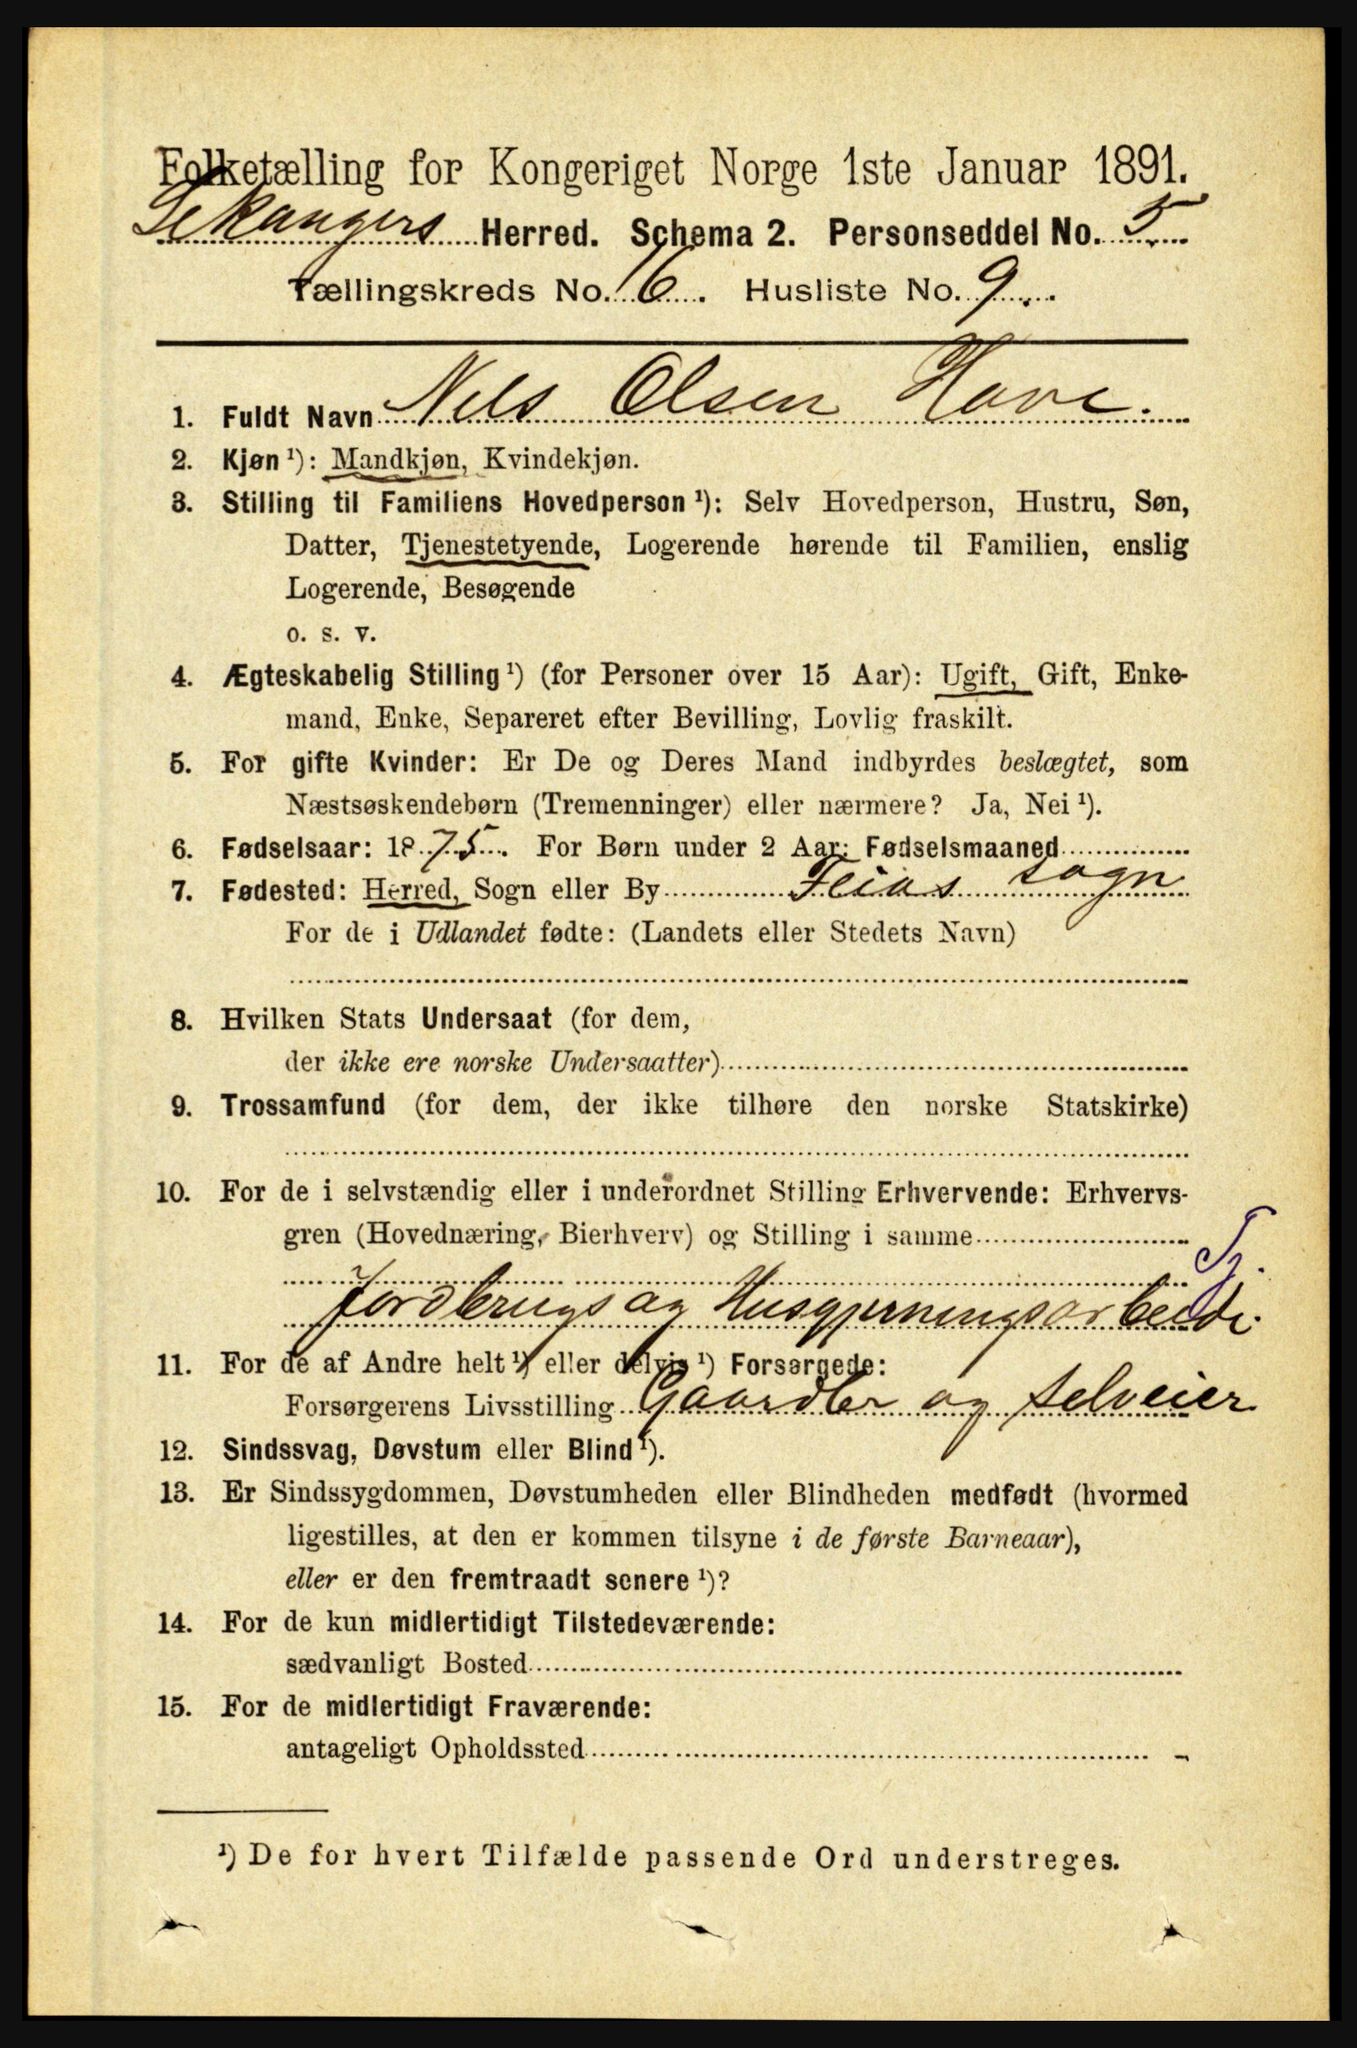 Folketælling for Kongeriget Norge 1ste Januar 1891.
Lekangers Herred. Schema 2. Personseddel No. 5
Tællingskreds No. 6. Husliste No. 9
1. Fuldt Navn Nels Olsen Hove.
2. Kjøn ¹): Mandkjøn, Kvindekjøn.
3. Stilling til Familiens Hovedperson ¹): Selv Hovedperson, Hustru, Søn,
Datter, Tjenestetyende, Logerende hørende til Familien, enslig
Logerende, Besøgende
o. s. v.
4. Ægteskabelig Stilling ¹) (for Personer over 15 Aar): Ugift, Gift, Enke-
mand, Enke, Separeret efter Bevilling, Lovlig fraskilt.
5. For gifte Kvinder: Er De og Deres Mand indbyrdes beslægtet, som
Næstsøskendebørn (Tremenninger) eller nærmere? Ja, Nei ¹).
6. Fødselsaar: 1875. For Børn under 2 Aar: Fødselsmaaned
7. Fødested: Herred, Sogn eller By Feios sogn
For de i Udlandet fødte: (Landets eller Stedets Navn)
8. Hvilken Stats Undersaat (for dem,
der ikke ere norske Undersaatter)
9. Trossamfund (for dem, der ikke tilhøre den norske Statskirke)
10. For de i selvstændig eller i underordnet Stilling Erhvervende: Erhvervs-
gren (Hovednæring, Bierhverv) og Stilling i samme
Tj.
Jordbrugs og Husgjerningsarbeide.
11. For de af Andre helt ¹) eller delvis ¹) Forsørgede:
Forsørgerens Livsstilling Gaardbr og selveier
12. Sindssvag, Døvstum eller Blind ¹).
13. Er Sindssygdommen, Døvstumheden eller Blindheden medfødt (hvormed
ligestilles, at den er kommen tilsyne i de første Barneaar),
eller er den fremtraadt senere ¹)?
14. For de kun midlertidigt Tilstedeværende:
sædvanligt Bosted
15. For de midlertidigt Fraværende:
antageligt Opholdssted
¹) De for hvert Tilfælde passende Ord understreges.